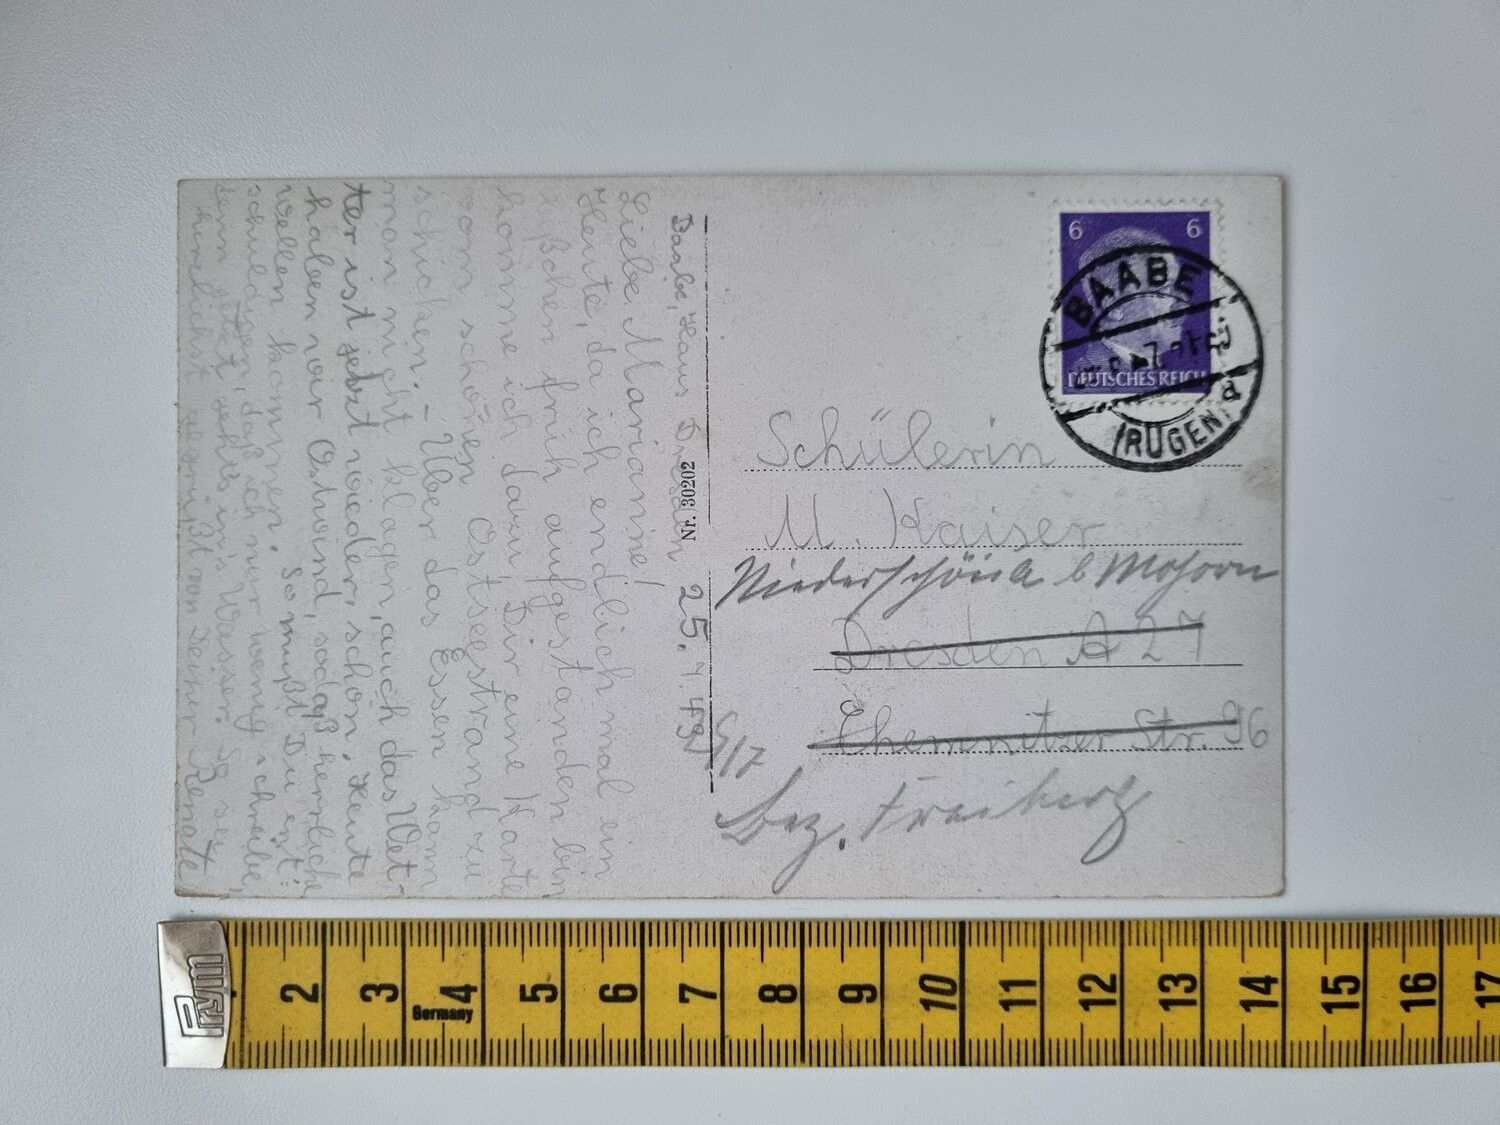 Baabe, Haus Dresden 25.7.43
Liebe Marianne!
Heute, da ich endlich mal ein
bißchen früh aufgestanden bin
komme ich dazu Dir eine Karte
vom schönen Ostseestrand zu
schicken. – Über das Essen kann
man nicht klagen, auch das Wet-
ter ist jetzt wieder schön. Heute
haben wir Ostwind, sodaß herrliche
Wellen kommen. So mußt Du ent-
schuldigen, daß ich nur wenig schreibe,
denn jetzt gehts in's Wasser. So sei
herzlichst gegrüßt von Deiner Renate
Nr. 30202
6 6
DEUTSCHES REICH
BAABE
(RÜGEN) d
Schülerin
M. Kaiser
Niederschöna b Mohorn
Dresden A 27
Chemnitzer Str. 96
Bez. Freiberg
Prym
2 3 4 5 6 7 8 9 10 11 12 13 14 15 16 17
Germany